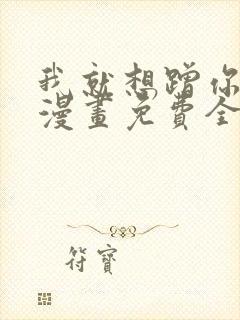 我就想蹭你
漫畫免費全
符寶